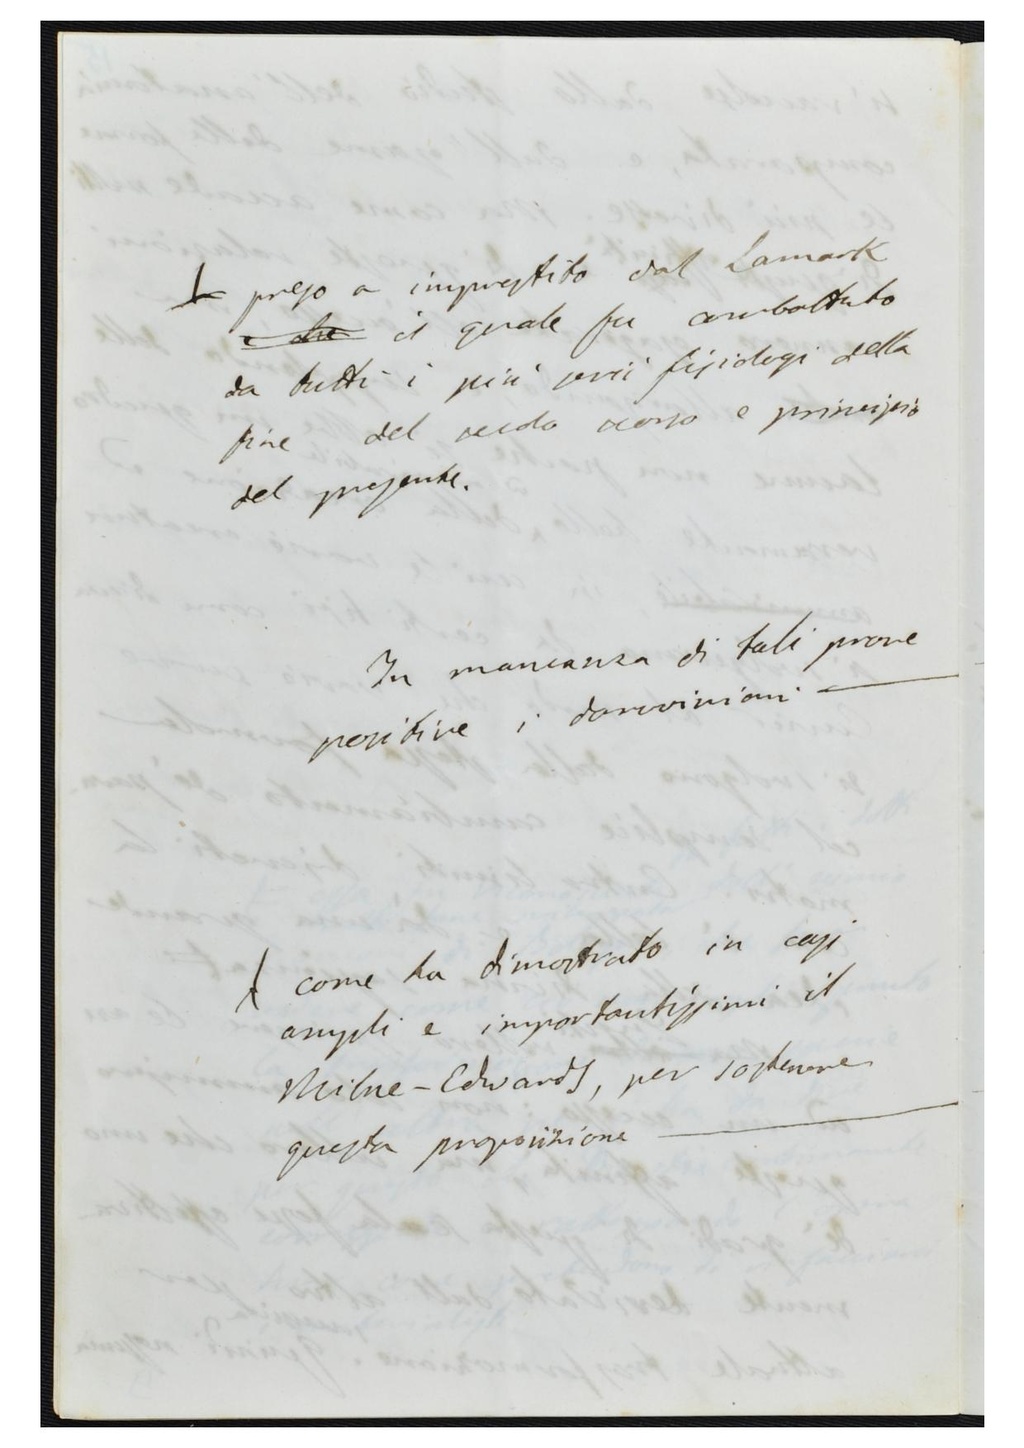 preso a imprestito dal Lamark
e che il quale fu combattuto
da tutti i più serii fisiologi della
fine del secolo scorso e principio
del presente.
In mancanza di tali prove
positive i darwiniani —
come ha dimostrato in casi
ampli e importantissimi il
Milne-Edwards, per sostenere
questa proposizione —